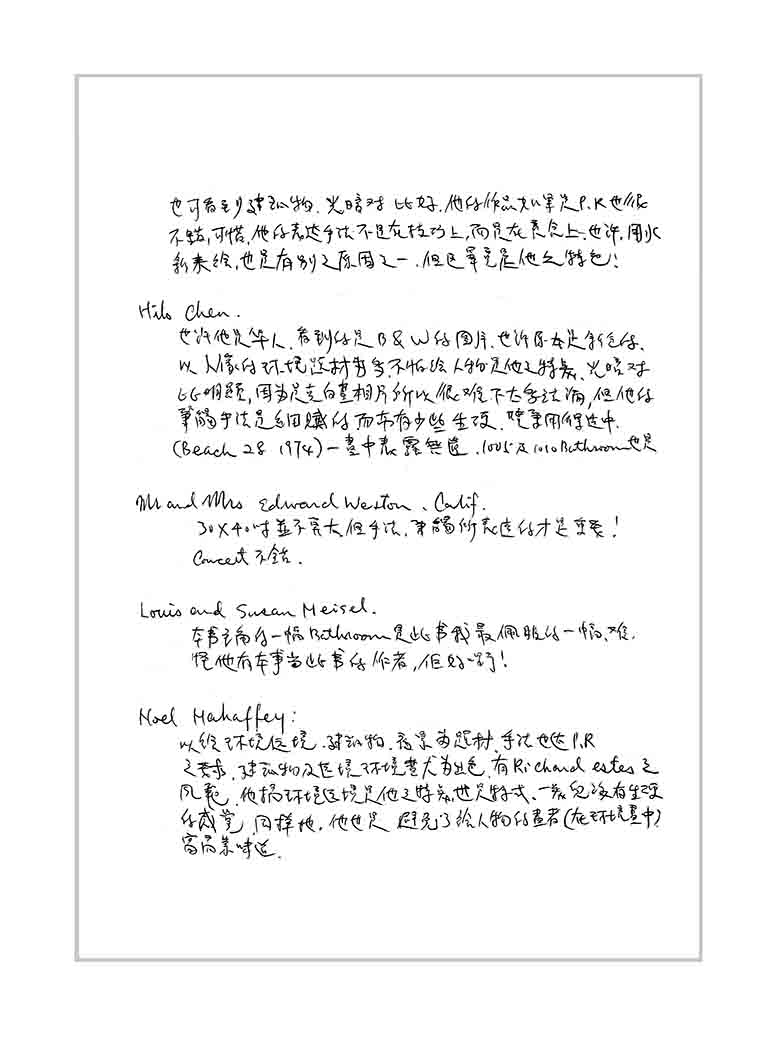 也可看到建筑物.光暗对比好.他的作品如果是P.R也很
不錯,可惜,他的表达手法不是在技巧上,而是在意念上.也许,用水
彩来绘,也是有别之原因之一.但这畢竟是他之特色!
Hilo Chen.
也许他是华人.看到的是B & W的图片.也许原本是彩色的.
以人像的环境题材为多.不怕绘人物是他之特長.光暗对
比明顯,因为是黑白相片所以很难下太多评論,但他的
筆觸手法是細膩的而有少些生硬.
(Beach 28 1974)一畫中表露無遺.1005及1010 Bathroom也是
Mr and Mrs Edward Weston、Calif.
30X40吋並不穹大但手法,筆觸所表达的才是重要!
Conceit 不錯.
Louis and Susan Meisel.
本書的一幅Bathroom是此书我最佩服的一幅、难
怪他有本事当此书的作者,很好哪!
Noel Mahaffey:
以绘环境.建筑物.夜景为题材.手法也达P.R
之要求.建筑物及环境畫尤为出色.有Richard estes之
风範.他搞环境是他之特意也是特式.一般没有生硬
的感觉.同样地.他也是避免了绘人物的畫者(在环境畫中)